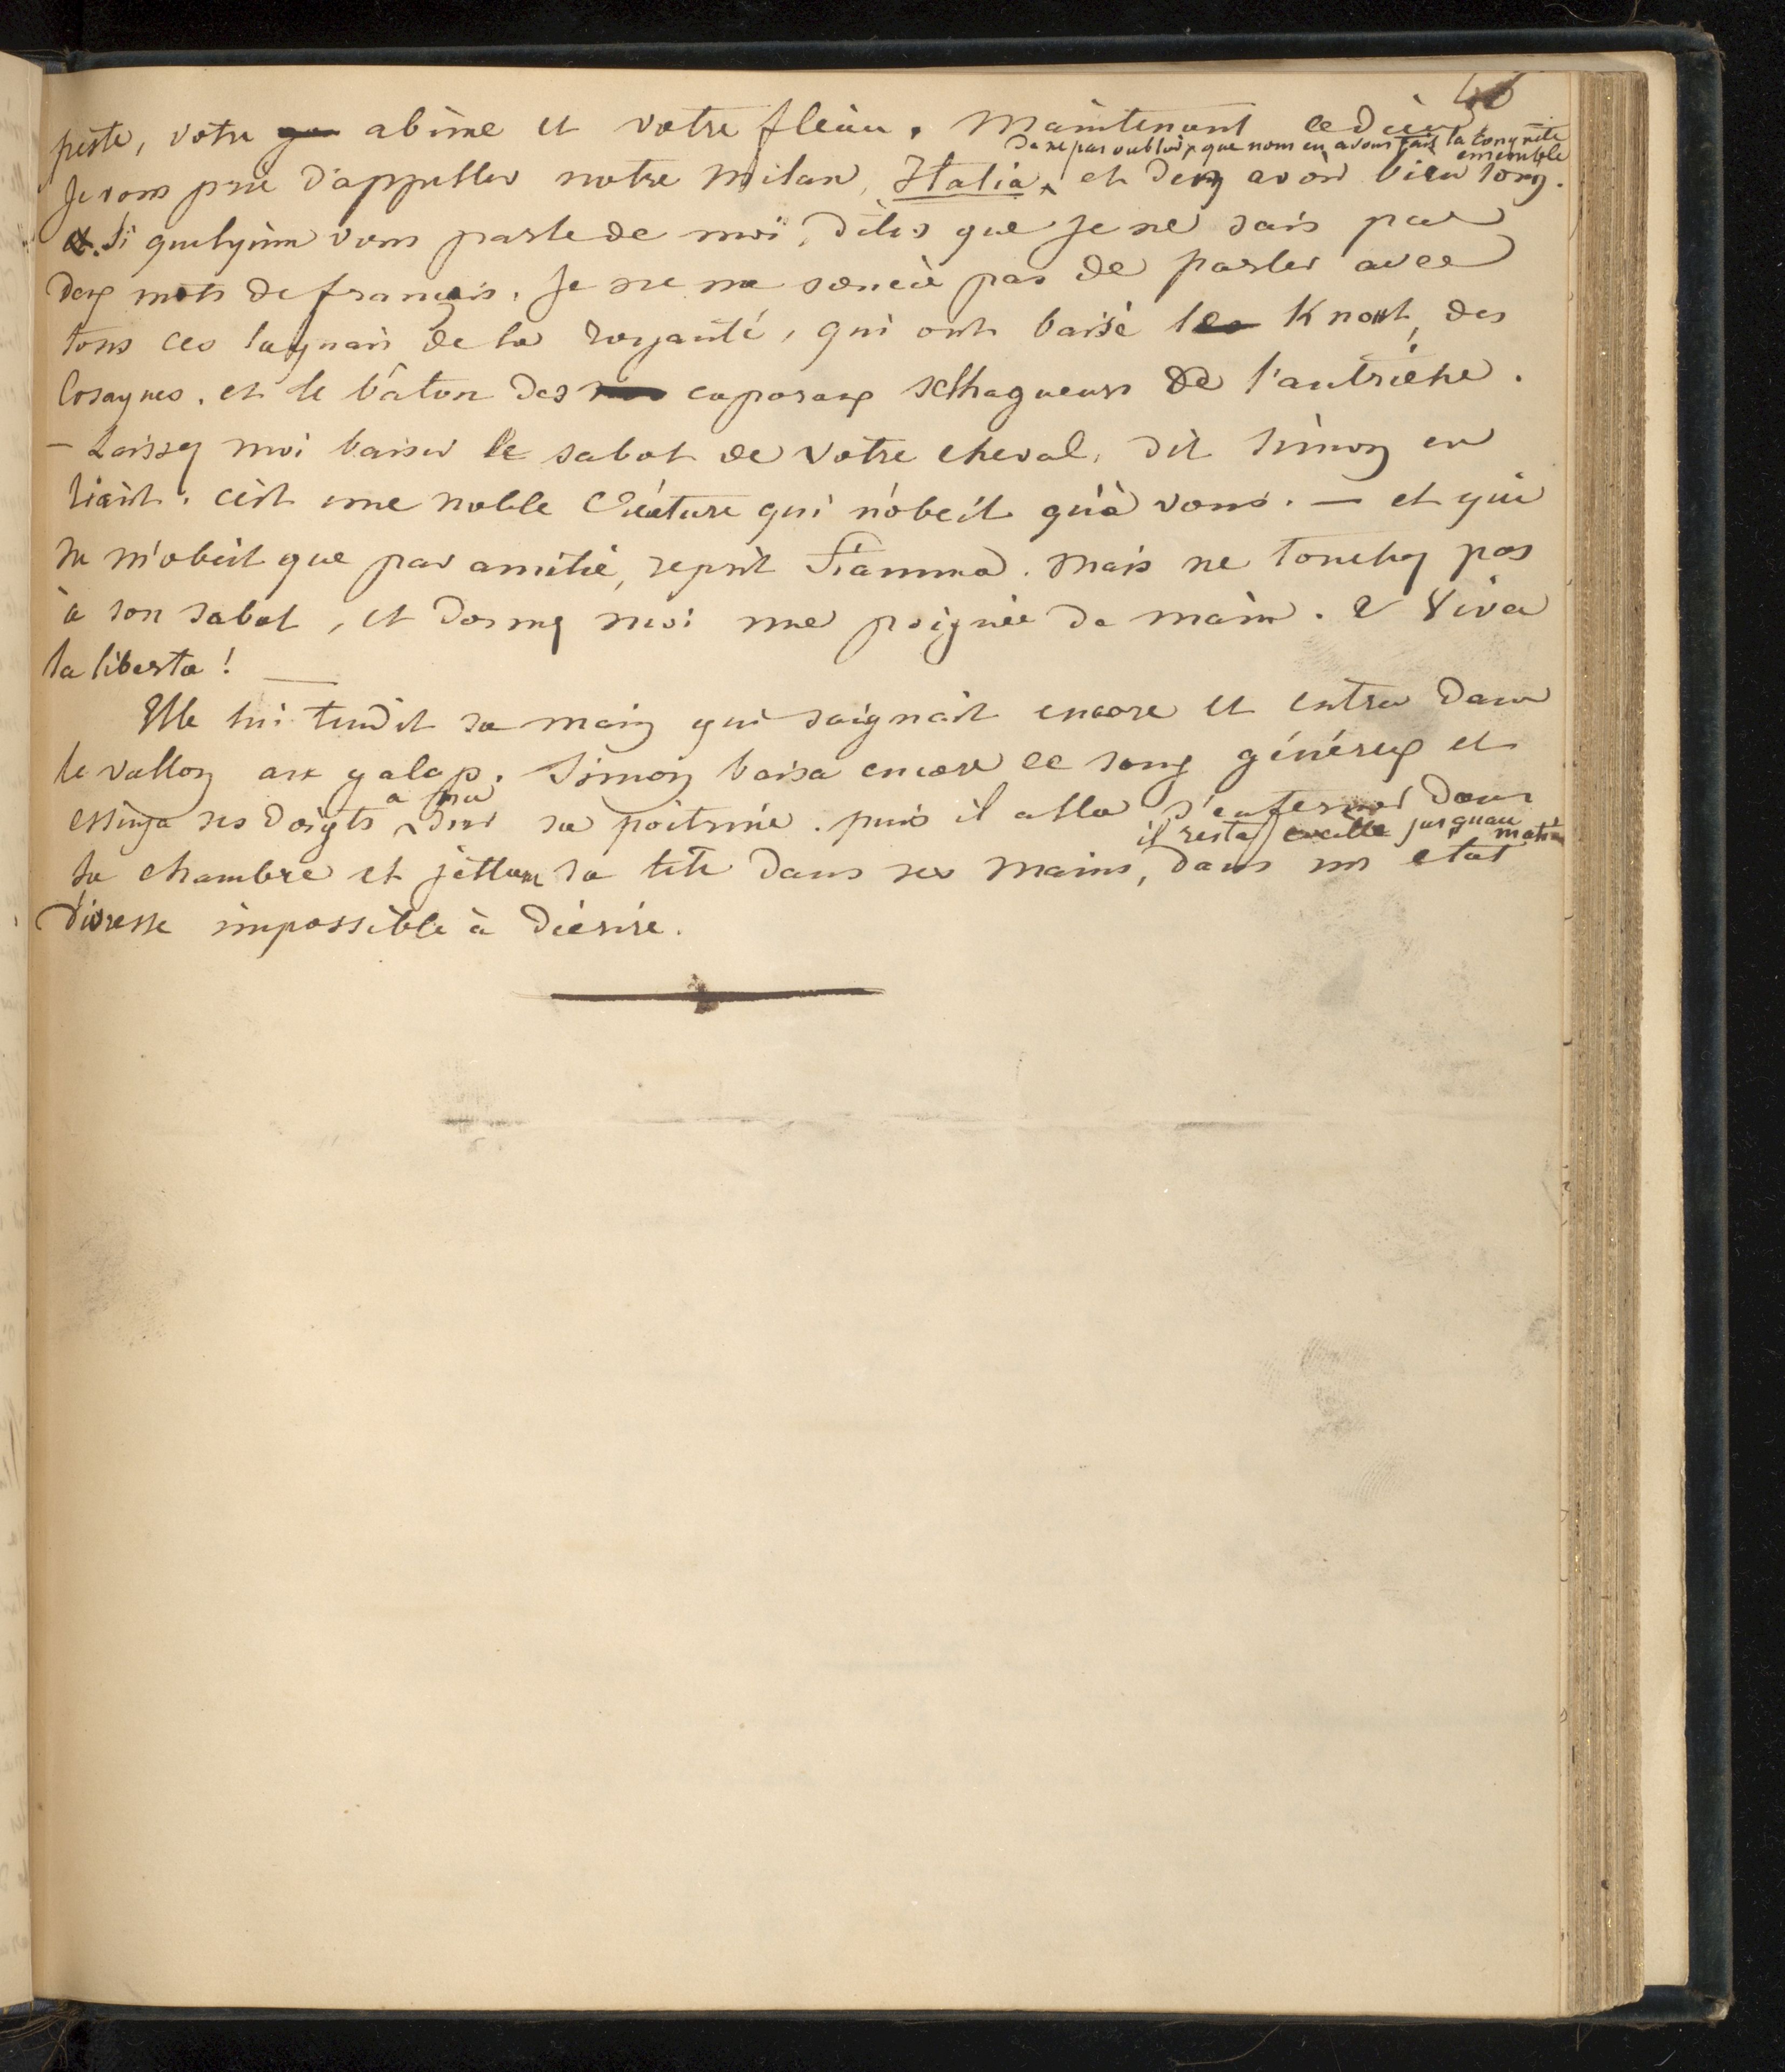 46
peste, votre abime et votre fleau. Maintenant adieu.
de ne pas oublier que nous en avons fait la conquete
ensemble
Je vous prie d'appeller notre milan, Italia, et d'en avoir bien soin.
Si quelqu'un vous parle de moi, dites que je ne sais pas
deux mots de français. Je ne me soucie pas de parler avec
tous ces laquais de la royauté, qui ont baisé le Knout des
Cosaques. et le bâton des caporaux schlagueurs de l'autriche.
– Laissez moi baiser le sabot de votre cheval, dit Simon en
riant. c'est une noble créature qui n'obeit qu'à vous. – et qui
ne m'obeit que par amitié, reprit Fiamma. Mais ne touchez pas
à son sabot, et donnez moi une poignée de main. E Viva
la liberta! —
Elle lui tendit sa main qui saignait encore et entra dans
le vallon au galop. Simon baisa encore ce sang généreux et
a nu
essuya ses doigts sur sa poitrine. puis il alla s'enfermer dans
il resta eveillé jusqu'au matin
sa chambre et jettant sa tête dans ses mains, dans un etat
d'ivresse impossible à décrire.